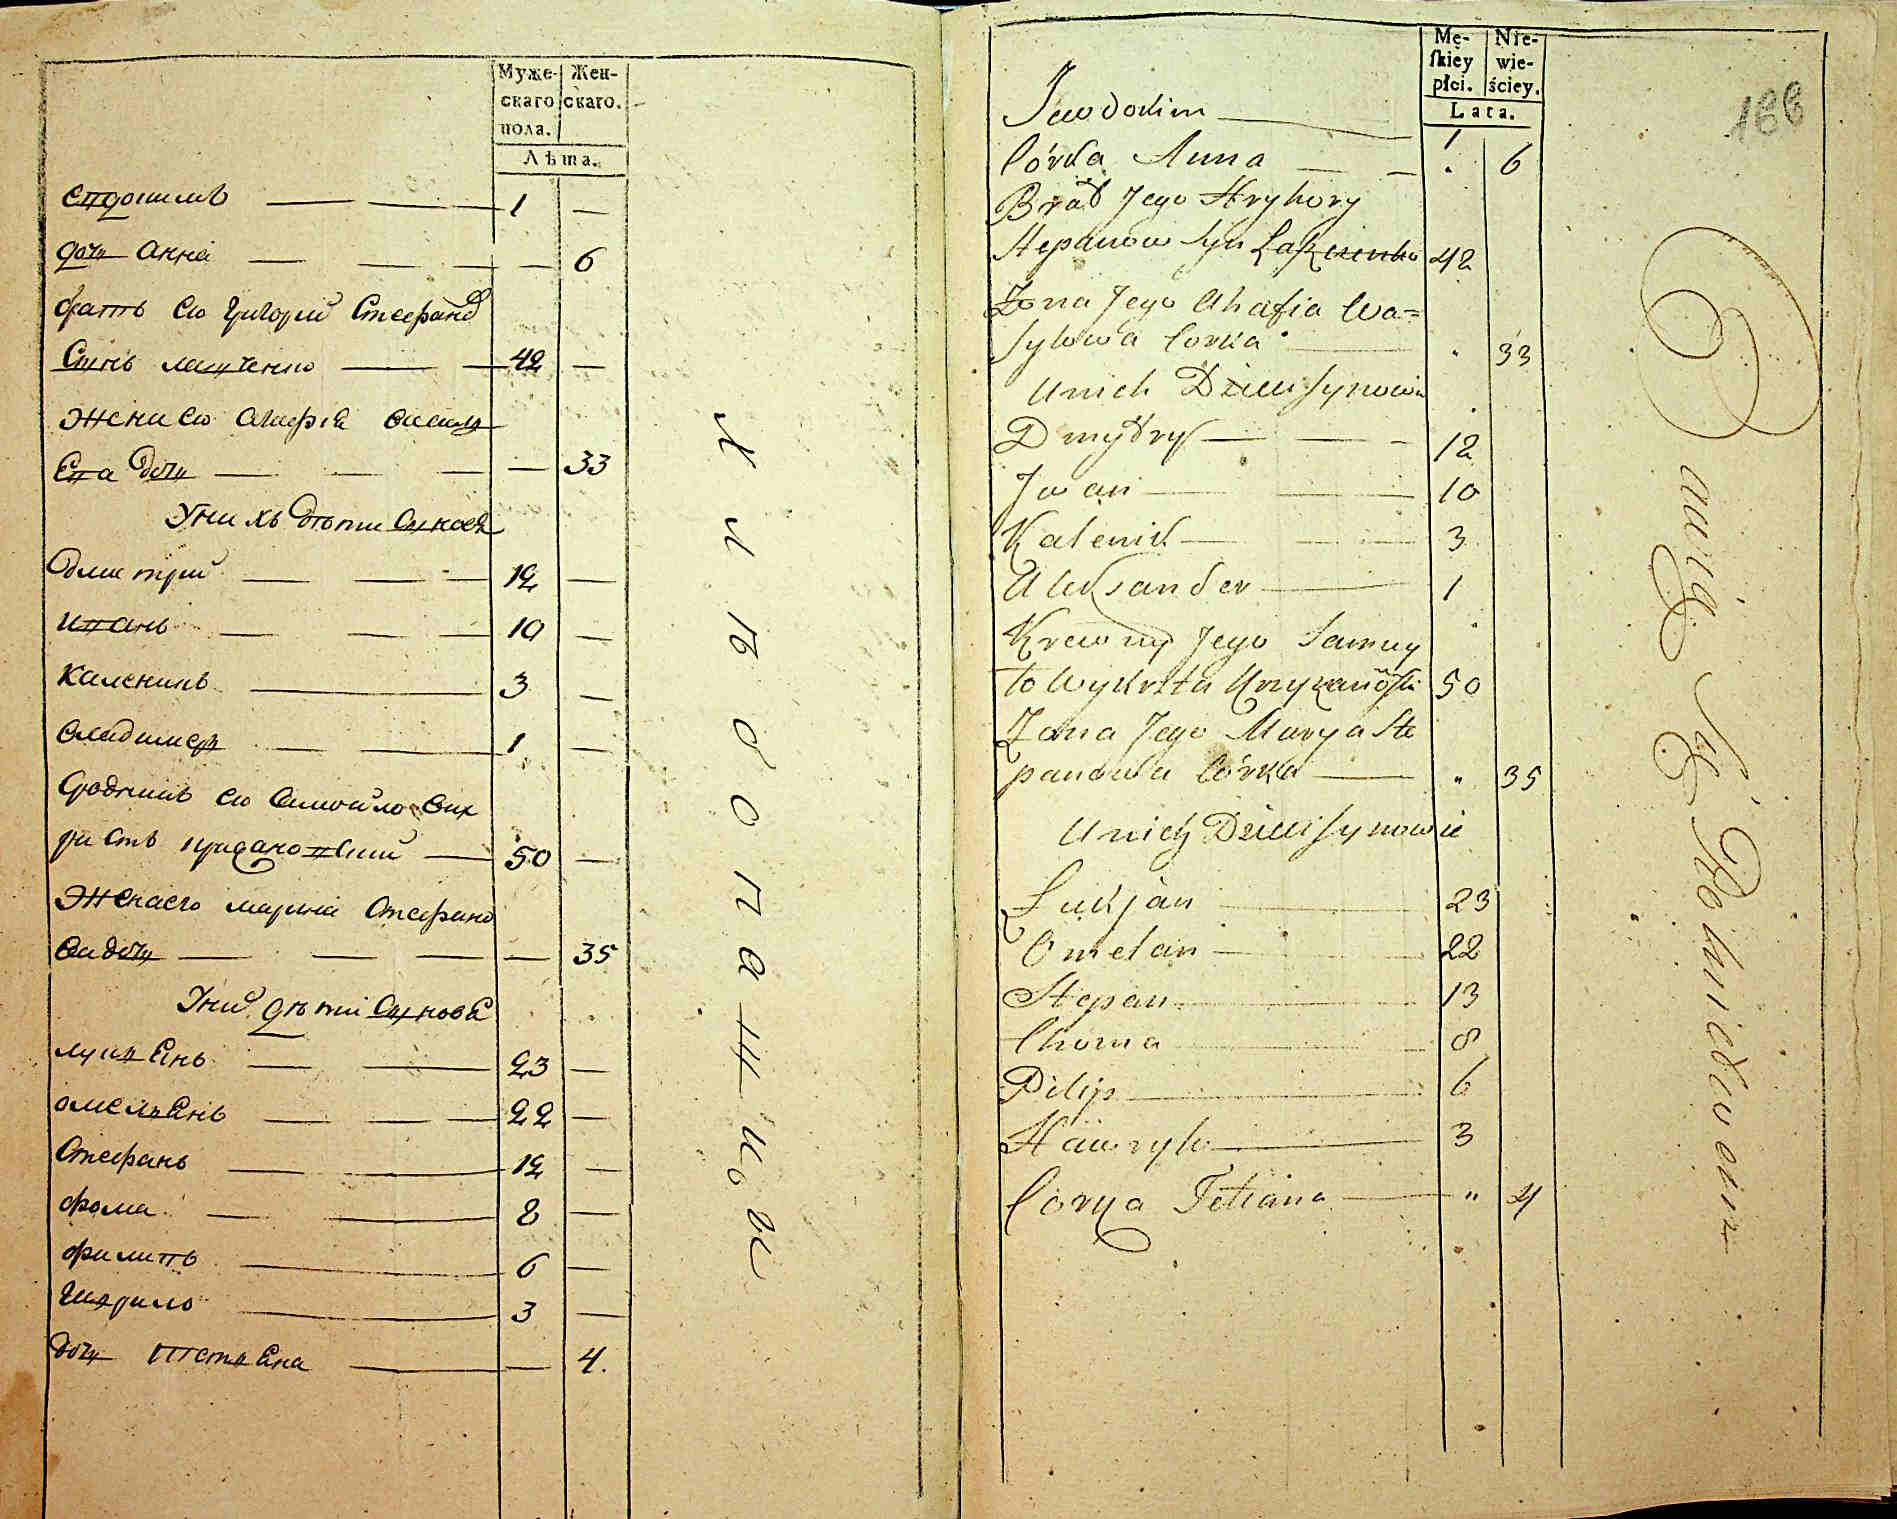 Муже-
скаго
пола.
Жен-
скаго.
Лѣта.
Евдокимъ 1 —
дочь Анна — 6
братъ его Григорий Стефановъ
Сынъ лащенко 42 —
Жена его Агафиа Василь
Ева дочь — 33
У нихъ дѣти Сыновья
Дмитрий 12 —
Иванъ 10 —
Каленикъ 3 —
1 —
его Самойло Вик
50 —
Жена его Мариа Стефано
ва дочь — 35
У них дѣти Сыновѣ
лукиЕнъ 23 —
омельЕнъ 22 —
Стефанъ 12 —
фома 8 —
филипъ 6 —
Гаврило 3 —
дочь тетиЕна — 4.
Mę-
skiey
płci.
Nie-
wie-
ściey.
Lata.
188
Jewdokim 1
Córka Anna " 6
Brat Jego Hryhory
Stepanow Syn Łaszczenko 42
Żona Jego Ahafia Wa=
sylowa Corka " 33
U nich Dzieci Synowie
Dmytry 12
Jwan 10
Kalenik 3
Aleksander 1
Krewny Jego Samuy
ło 50
Żona Jego Marya Ste
panowa Córka " 35
U nich Dzieci Synowie
Łukjan 23
Omelan 22
Stepan 13
Choma 8
Pilip 6
Hawryło 3
Corka Tetiana " 4